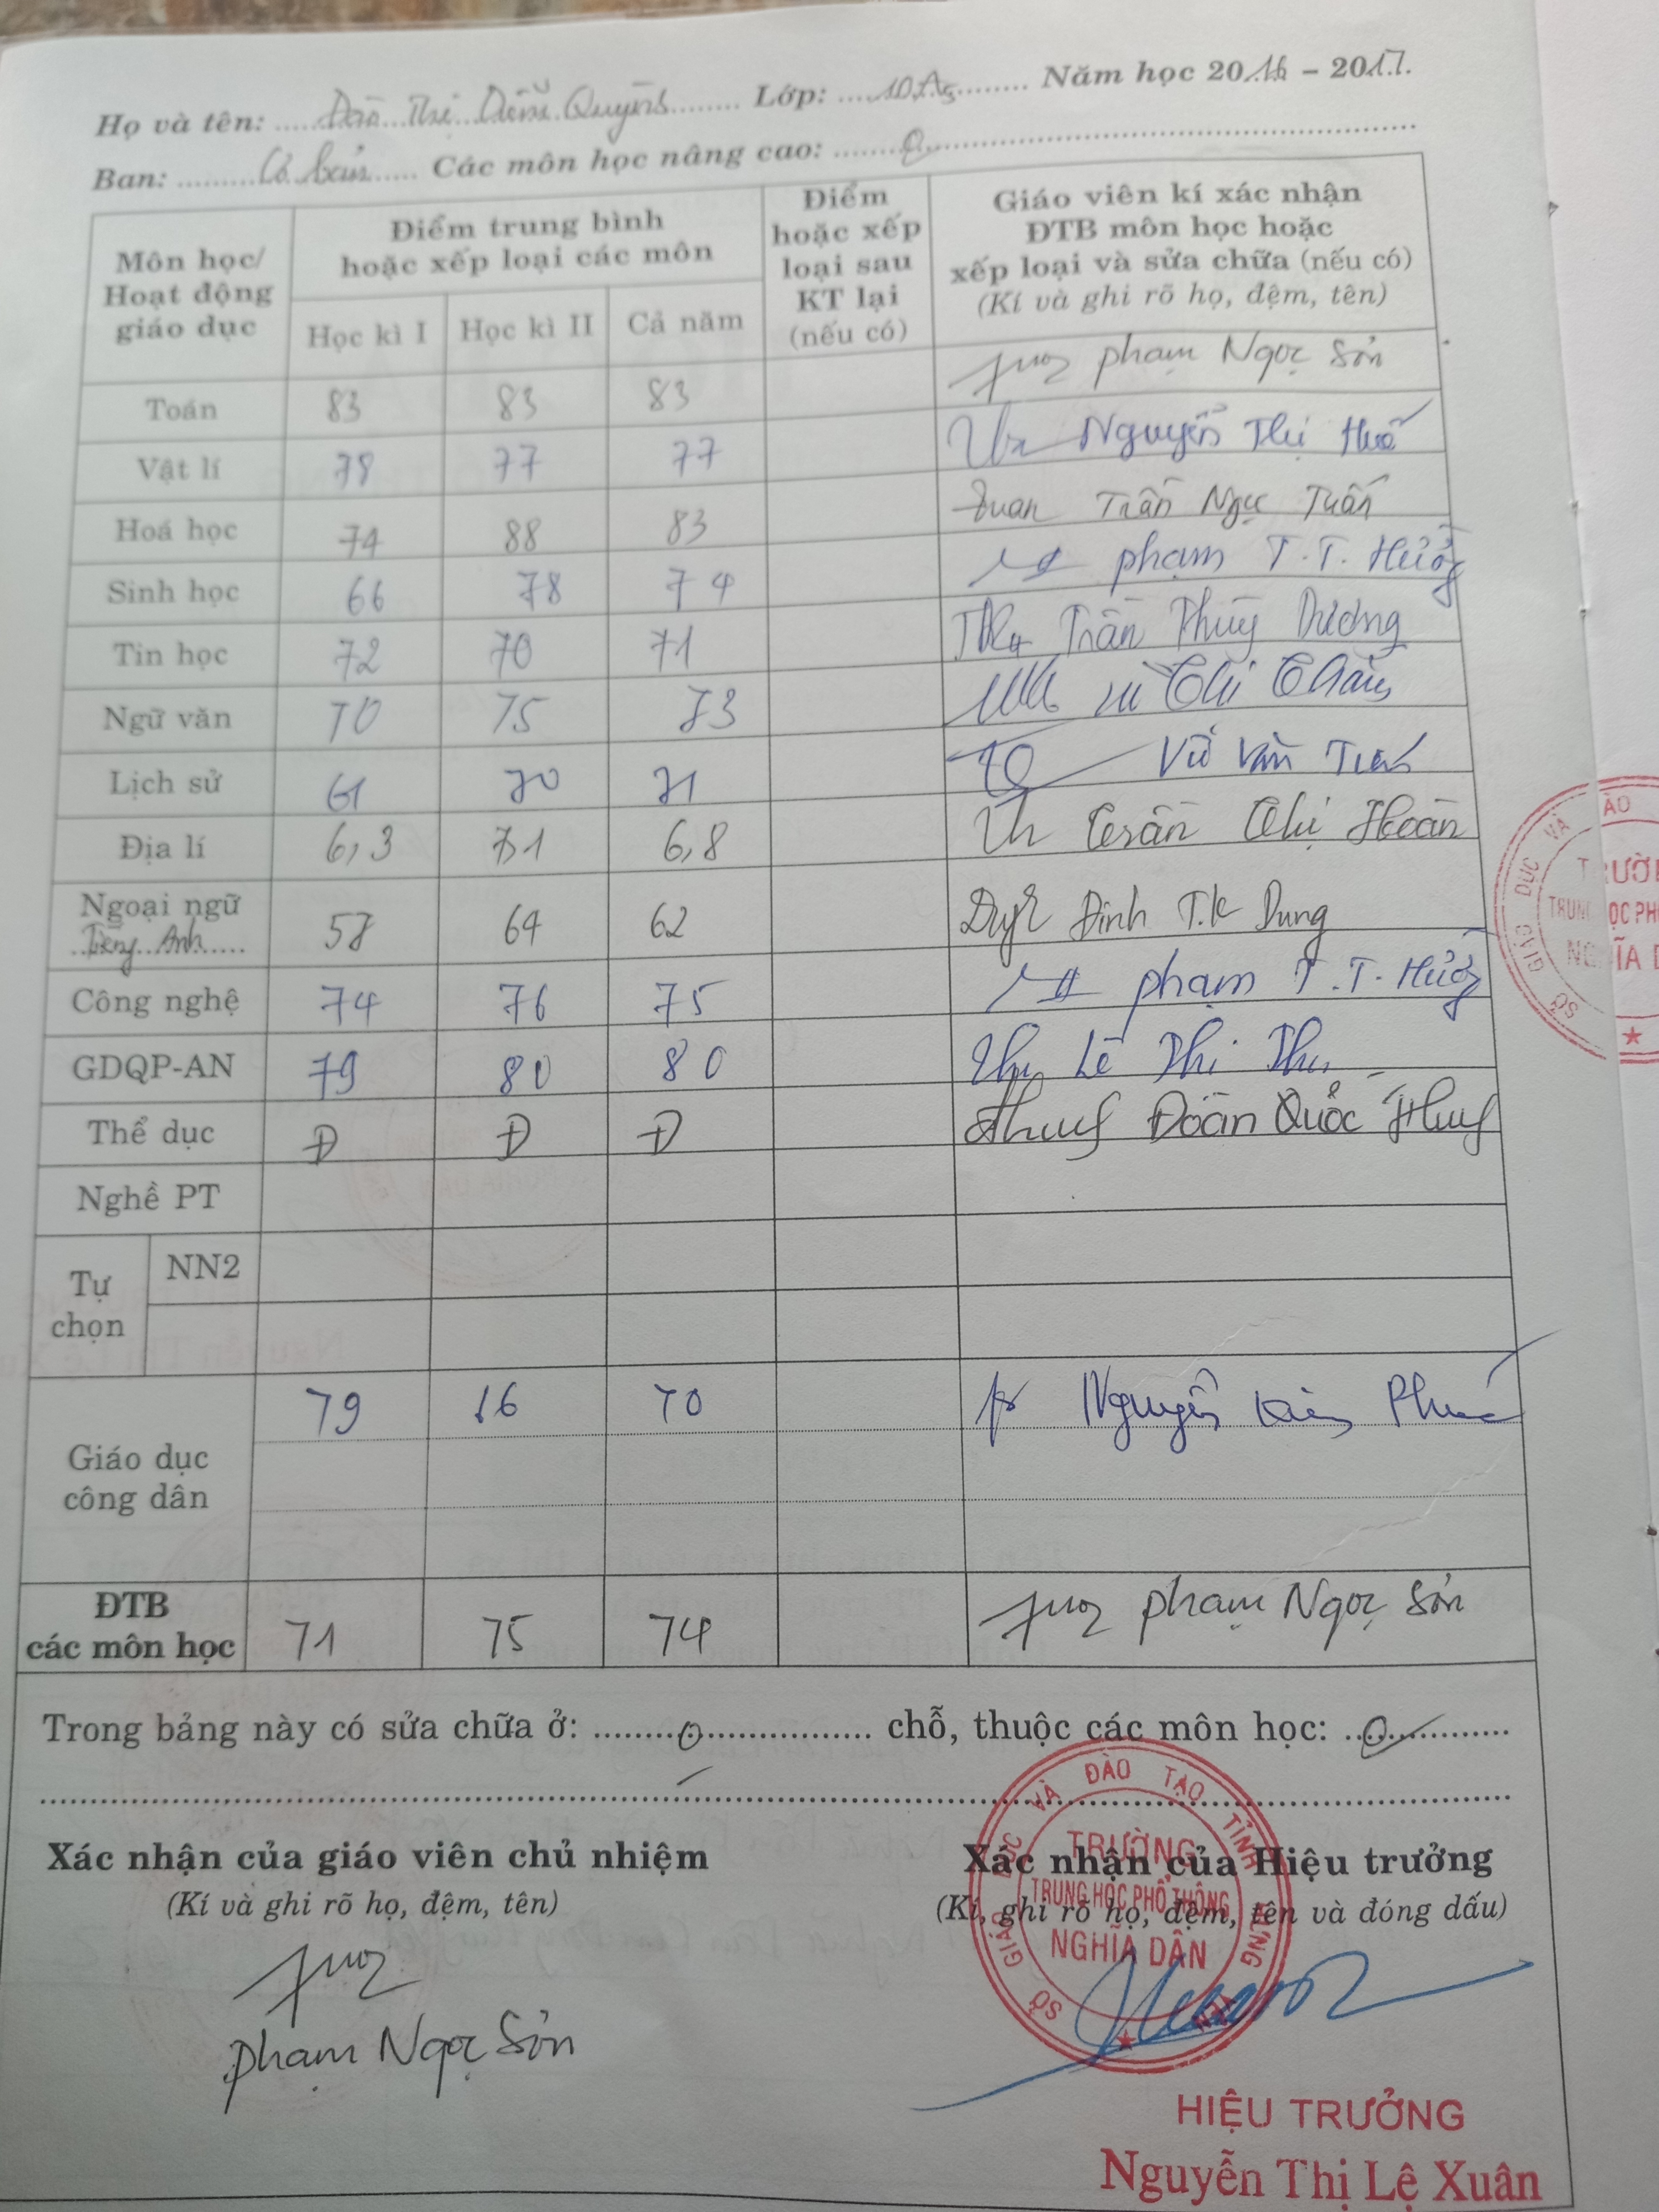 Họ và tên: Đào Thị Diễm Quỳnh Lớp: 10A5 Năm học 2016 – 2017.
Ban: Cơ bản Các môn học nâng cao: 0
Môn học/ Hoạt động giáo dục
Điểm trung bình hoặc xếp loại các môn
Điểm hoặc xếp loại sau KT lại (nếu có)
Giáo viên kí xác nhận ĐTB môn học hoặc xếp loại và sửa chữa (nếu có) (Kí và ghi rõ họ, đệm, tên)
Học kì I Học kì II Cả năm
Toán 83 83 83 Phạm Ngọc Sơn
Vật lí 78 77 77 Nguyễn Thị Huế
Hoá học 74 88 83 Trần Ngọc Tuấn
Sinh học 66 78 74 Phạm T.T. Hưởng
Tin học 72 70 71 Trần Thùy Dương
Ngữ văn 70 75 73
Lịch sử 61 70 71 Vũ Văn
Địa lí 6,3 71 6,8 Trần Thị Hoàn
Ngoại ngữ 58 64 62 Đinh T.K Dung
Tiếng Anh
Công nghệ 74 76 75 Phạm T.T. Hưởng
GDQP-AN 79 80 80 Lê Thị Thu
Thể dục Đ Đ Đ Đoàn Quốc Huy
Nghề PT
Tự chọn
NN2
Giáo dục công dân 79 16 70 Nguyễn
ĐTB các môn học 71 75 74 Phạm Ngọc Sơn
Trong bảng này có sửa chữa ở: 0 chỗ, thuộc các môn học: 0
Xác nhận của giáo viên chủ nhiệm
(Kí và ghi rõ họ, đệm, tên)
Phạm Ngọc Sơn
Xác nhận của Hiệu trưởng
(Kí, ghi rõ họ, đệm, tên và đóng dấu)
SỞ GIÁO DỤC VÀ ĐÀO TẠO TỈNH HƯNG YÊN
TRƯỜNG
TRUNG HỌC PHỔ THÔNG
NGHĨA DÂN
HIỆU TRƯỞNG
Nguyễn Thị Lệ Xuân